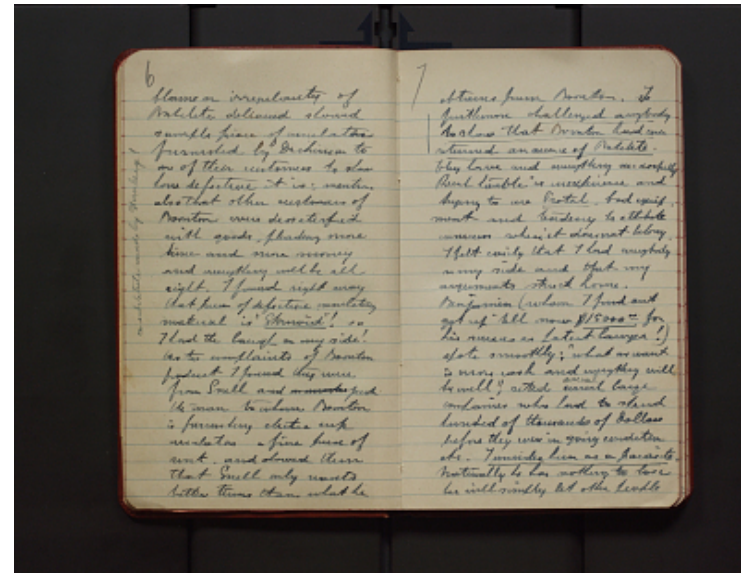 6
blame on irregularity of
Bakelite delivered showed
sample piece of insulator
furnished by Dickinson to
one of their customers to show
how defective it is; mention
also that other customers of
Boonton were dissatisfied
with goods, pleading more
time and more money
and everything will be all
right. I found right away
that piece of defective insulating
material is "
I had the laugh on my side!
As to complaints of Boonton
product I found they were
from Snell and
the man to whom Boonton
is furnishing electric
insulators a fine piece of
and showed them
that Snell only wants
better terms than what he
7
obtains from Boonton. I
furthermore challenged anybody
to show that Boonton had ever
returned an ounce of Bakelite.
They have used everything successfully
Real trouble is inexperience and
trying to use bad equip-
ment and tendency to attribute
where it does not belong.
I felt easily that I had everybody
on my side and that my
arguments struck home.
Benjamin (whom I find out
got up till now $15000 for
his services as Patent lawyer!)
spoke smoothly; "what we want
is more cash and everything will
be well", cited several large
companies who had to spend
hundred of thousands of Dollars
before they were in going condition
etc. I consider him as a parasite.
Naturally he has nothing to lose
he will simply let other people